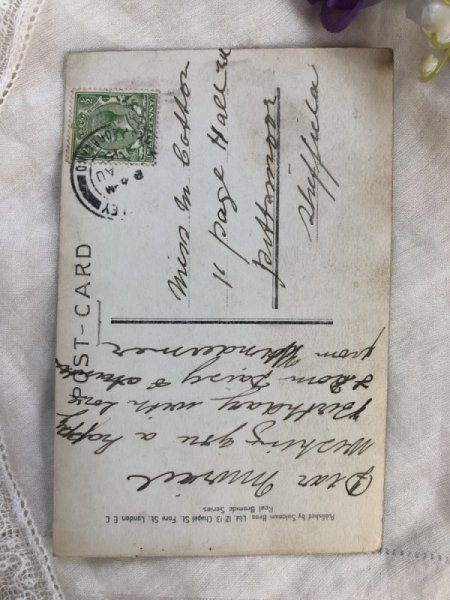 POST-CARD
Dear Muriel
Wishing you a happy
Birthday with love
from Daisy &
from Windermere
Miss M Cotton
11 Page Hall Rd
Pittsmoor
Sheffield
Published by Solomon Bros Ltd. 12/13, Chapel St. Fore St. London E.C.
Real Bromide Series
AU